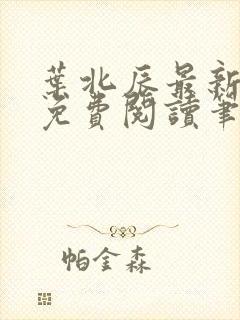 葉北辰最新
免費閱讀筆
帕金森